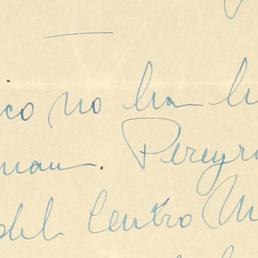 ico no han h
man. Pereyra
del Centro M